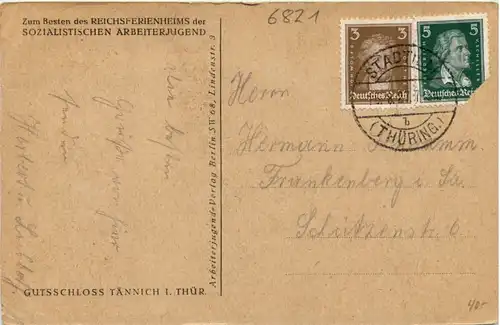 Zum Besten des REICHSFERIENHEIMS der
SOZIALISTISCHEN ARBEITERJUGEND
6821
3 3
Deutsches Reich
5 5
Deutsches Reich
STADTILM
b
(THÜRING.)
Herrn
Hermann
Frankenberg i. Sa.
Schützenstr. 6
Arbeiterjugend-Verlag Berlin SW 68, Lindenstr. 3
Die besten
Grüße von hier
senden
Herbert u.
GUTSSCHLOSS TÄNNICH I. THÜR.
40-